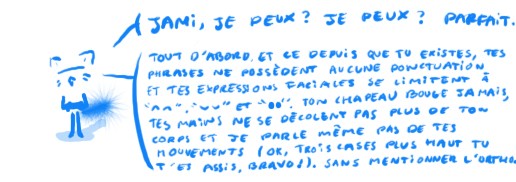 JAMI, JE PEUX ? JE PEUX ? PARFAIT.
TOUT D'ABORD, ET CE DEPUIS QUE TU EXISTES, TES
PHRASES NE POSSÈDENT AUCUNE PONCTUATION
ET TES EXPRESSIONS FACIALES SE LIMITENT À
"^^", "vv" ET "••". TON CHAPEAU BOUGE JAMAIS,
TES MAINS NE SE DÉCOLENT PAS PLUS DE TON
CORPS ET JE PARLE MÊME PAS DE TES
MOUVEMENTS (OK, TROIS CASES PLUS HAUT TU
T'ES ASSIS, BRAVO!). SANS MENTIONNER L'ORTHO.